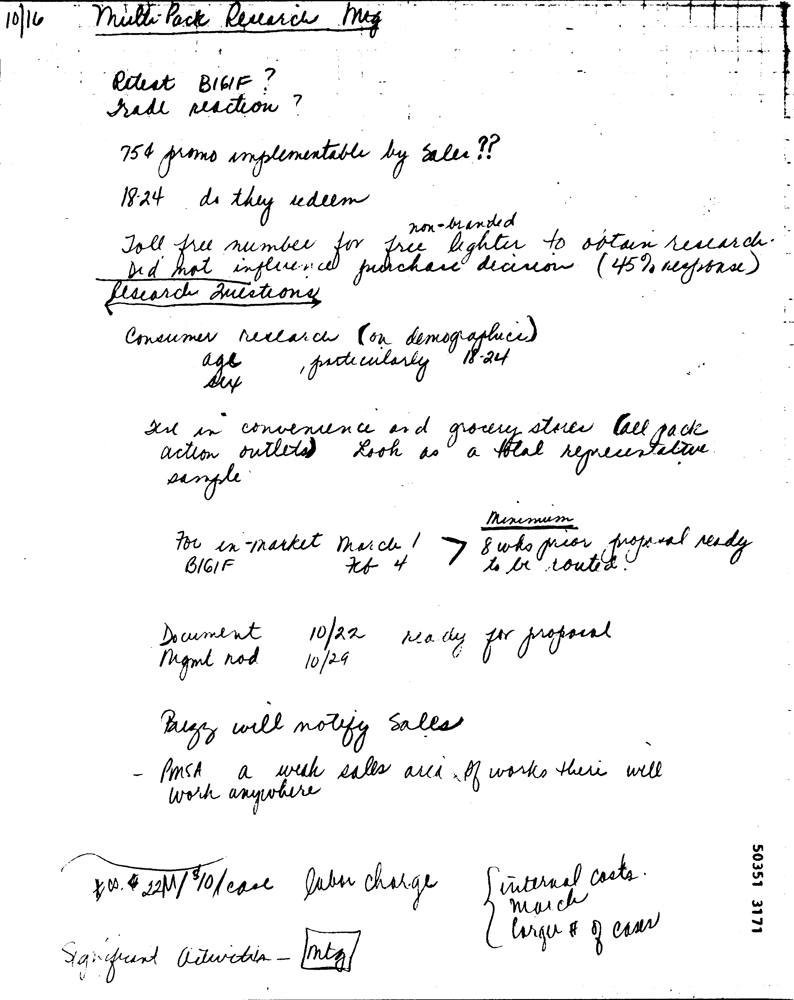 10/16 Multi-Pack Research Mtg
Retest B1G1F ?
Trade reaction ?
75¢ promo implementable by Sales ??
18-24 do they redeem
non-branded
Toll free number for free lighter to obtain research.
Did not influence purchase decision (45% response)
Research Questions
Consumer research (on demographics)
age , particularly 18-24
sex
Test in convenience and grocery stores (all pack
action outlets) Look as a total representative
sample
Minimum
For in-market March 1 > 8 wks prior proposal ready
B1G1F Feb 4 to be routed.
Document 10/22 ready for proposal
Mgmt nod 10/29
will notify Sales
- PMSA a weak sales area. If works there will
work anywhere
22M/ $10/case labor charge { internal costs.
March
larger # of cases
Significant Activities - Mtg
50351 3171